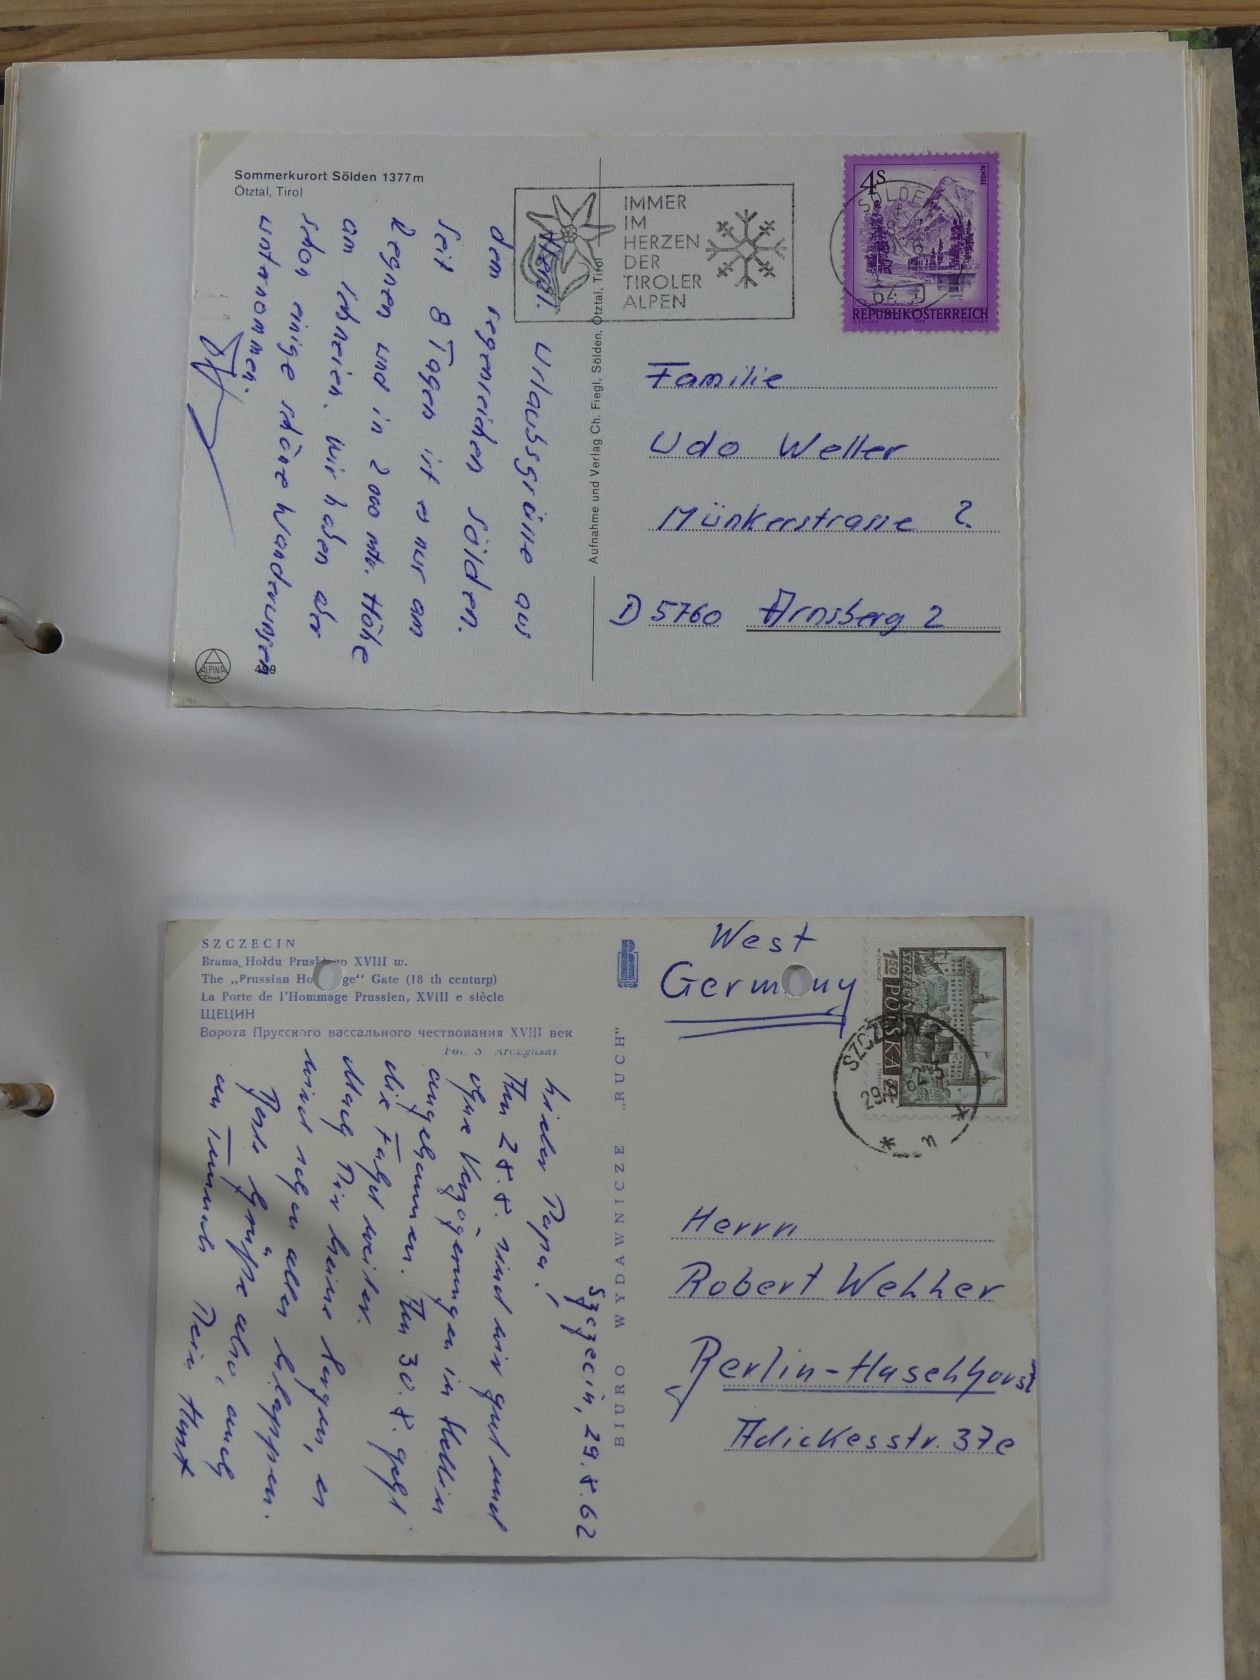 Sommerkurort Sölden 1377m
Ötztal, Tirol
IMMER
IM
HERZEN
DER
TIROLER
ALPEN
4S
ALMSEE
SÖLDEN
REPUBLIK ÖSTERREICH
Herzl. Urlaubsgrüsse aus
dem regenreichen Sölden.
Seit 8 Tagen ist es nur am
Regnen und in 2000 mtr. Höhe
am schneien. Wir haben aber
schon einige schöne Wanderungen
unternommen.
Aufnahme und Verlag Ch. Fiegl, Sölden, Ötztal, Tirol
Familie
Udo Weller
Münkerstrasse 2
D 5760 Arnsberg 2
ALPINA
Druck
499
SZCZECIN
Brama Hołdu Pruskiego XVIII w.
The „Prussian Homage" Gate (18 th century)
La Porte de l'Hommage Prussien, XVIII e siècle
ЩЕЦИН
Ворота Прусского вассального чествования XVIII век
Fot. S. Arczyński
BIURO WYDAWNICZE „RUCH"
Szczecin, 29.8.62
Lieber Papa!
Am 28.8. sind wir gut und
ohne Verzögerungen in Stettin
angekommen. Am 30.8. geht
die Fahrt weiter.
Mach Dir keine Sorgen, es
wird schon alles klappen.
Beste Grüße also, auch
an Dein Horst
West
Germany
150 SZCZECIN
POLSKA ZŁ
SZCZECIN 2
29
Herrn
Robert Wehher
Berlin-Haselhorst
Adickesstr. 37e